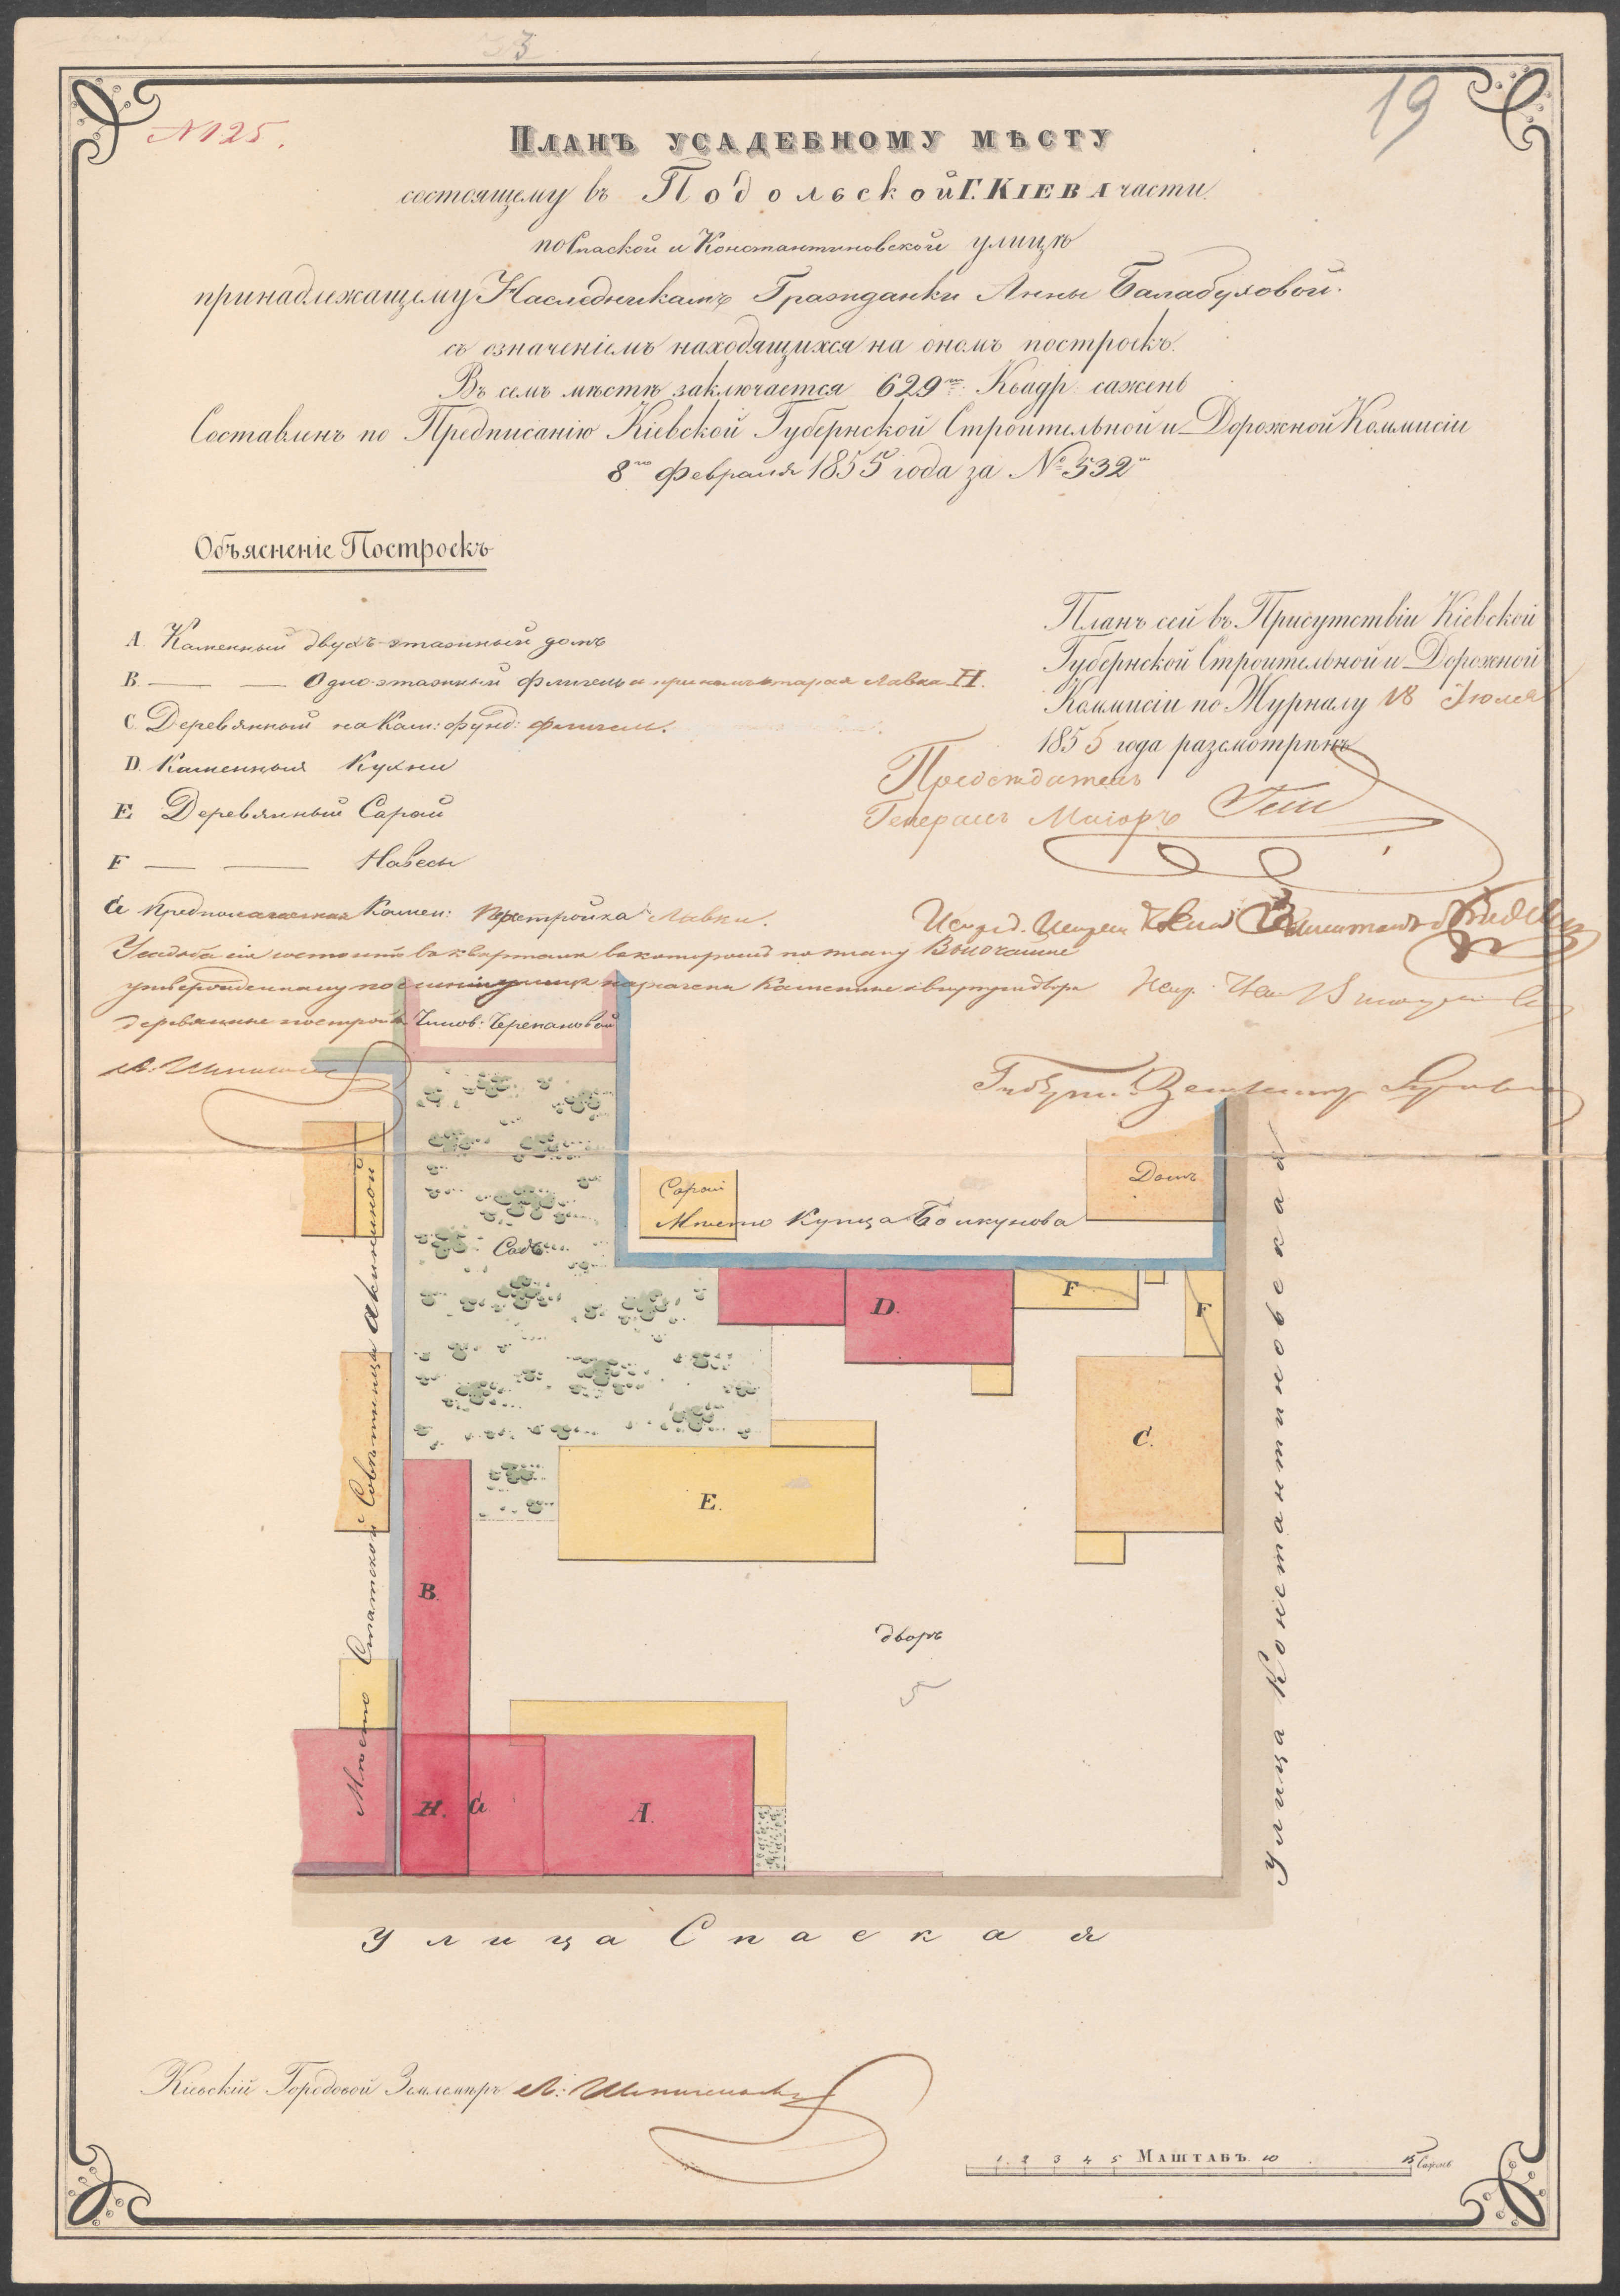 33
19
№ 125.
Планъ усадебному мѣсту
состоящему въ Подольской Г. Кіева части
по Спаской и Константиновской улицѣ
принадлежащему Наслѣдникамъ Гражданки Анны Балабуховой.
съ означеніемъ находящихся на ономъ построекъ.
Въ семъ мѣстѣ заключается 629 Квадр. сажень
Составленъ по Предписанію Кіевской Губернской Строительной и Дорожной Коммисіи
8го Февраля 1855 года за № 532
Объясненіе Построекъ
A. Каменный двухъ-этажный домъ
B. — — Одно-этажный флигель и при немъ старая лавка H.
C. Деревянный на Кам: фунд: флигель.
D. Каменныя Кухни
E. Деревянный Сарай
F — — Навесы
G Предполагаемая Камен: Пристройка Лавки.
Усадьба сія состоитъ въ кварталѣ въ которомъ по плану Высочайше
утвержденному по назначены Каменные а внутри двора
деревянные постройки
Планъ сей въ Присутствіи Кіевской
Губернской Строительной и Дорожной
Коммисіи по Журналу 18 Іюля
1855 года разсмотрѣнъ
Предсѣдатель
Генералъ Маіоръ
Чинов: Черепановой
Садъ
Сарай
Мѣсто Купца Бойкунова
Домъ
D.
F
F
C.
E.
B.
дворъ
H.
G
A.
Мѣсто Статской Совѣтницы Акининой
Улица Константиновская
Улица Спаская
Кіевскій Городовой Землемѣръ
1 2 3 4 5 Маштабъ 10 15 Сажнь